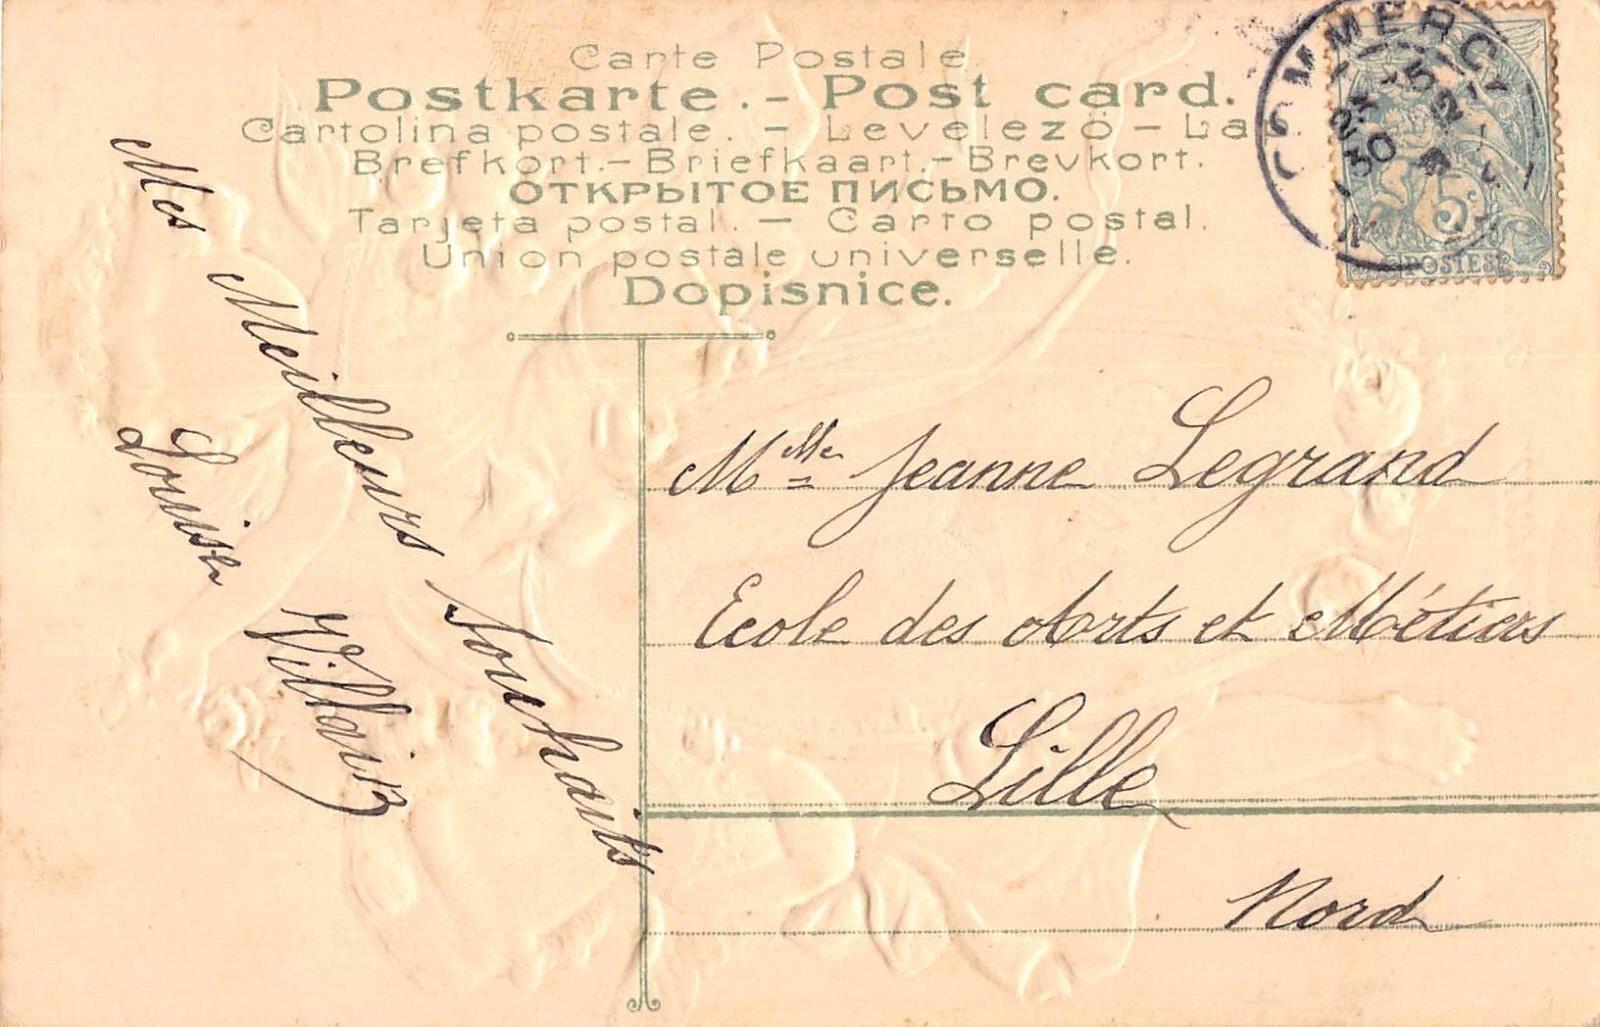 Carte Postale.
Postkarte. - Post card.
Cartolina postale. - Levelezö - Lap.
Brefkort. - Briefkaart. - Brevkort.
ОТКРЫТОЕ ПИСЬМО.
Tarjeta postal. - Carto postal.
Union postale universelle.
Dopisnice.
COMMERCY
5c
POSTES
Mes Meilleurs Souhaits
Louise
Mlle Jeanne Legrand
Ecole des Arts et Métiers
Lille
Nord